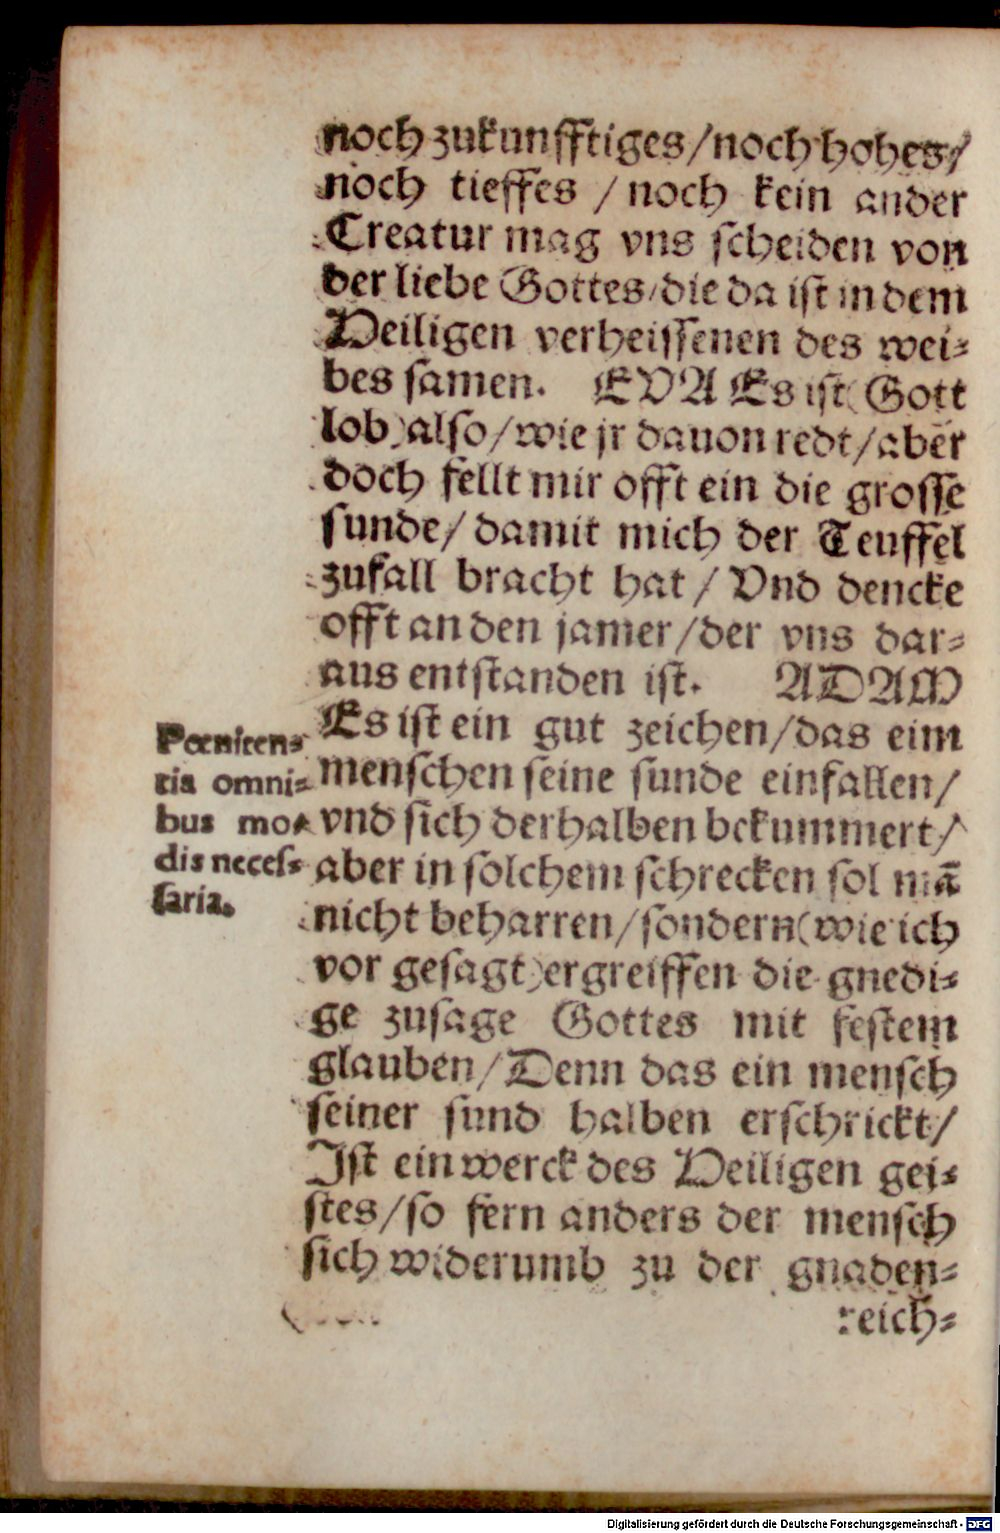 noch zukunfftiges/noch hohes/
noch tieffes / noch kein ander
Creatur mag vns ſcheiden von
der liebe Gottes/die da iſt in dem
Heiligen verheiſſenen des wei⸗
bes ſamen. EVA Es iſt (Gott
lob) alſo/wie jr dauon redt/aber
doch fellt mir offt ein die groſſe
ſunde/ damit mich der Teuffel
zufall bracht hat / Vnd dencke
offt an den jamer/der vns dar⸗
aus entſtanden iſt. ADAM
Es iſt ein gut zeichen/das eim
menſchen ſeine ſunde einfallen/
vnd ſich derhalben bekummert/
aber in ſolchem ſchrecken ſol mā
nicht beharren/ſondern (wie ich
vor geſagt) ergreiffen die gnedi⸗
ge zuſage Gottes mit feſtem
glauben/Denn das ein menſch
ſeiner ſund halben erſchrickt/
Iſt ein werck des Heiligen gei⸗
ſtes/ſo fern anders der menſch
ſich widerumb zu der gnaden⸗
reich⸗
Poeniten⸗
tia omni⸗
bus mo⸗
dis neceſ⸗
ſaria.
Digitalisierung gefördert durch die Deutsche Forschungsgemeinschaft - DFG